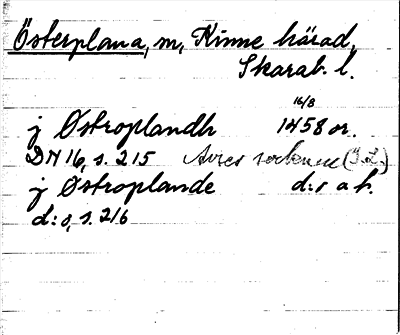 Österplana, m, Kinne härad,
Skarab. l.
16/8
j Østroplandh 1458 or.
DN 16, s. 215 Avser socknen (I.L.)
j Østroplande d:o a h.
d:o, s. 216